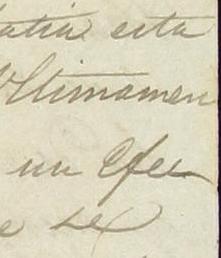 atia esta
Ultimamen
un Efec
e se